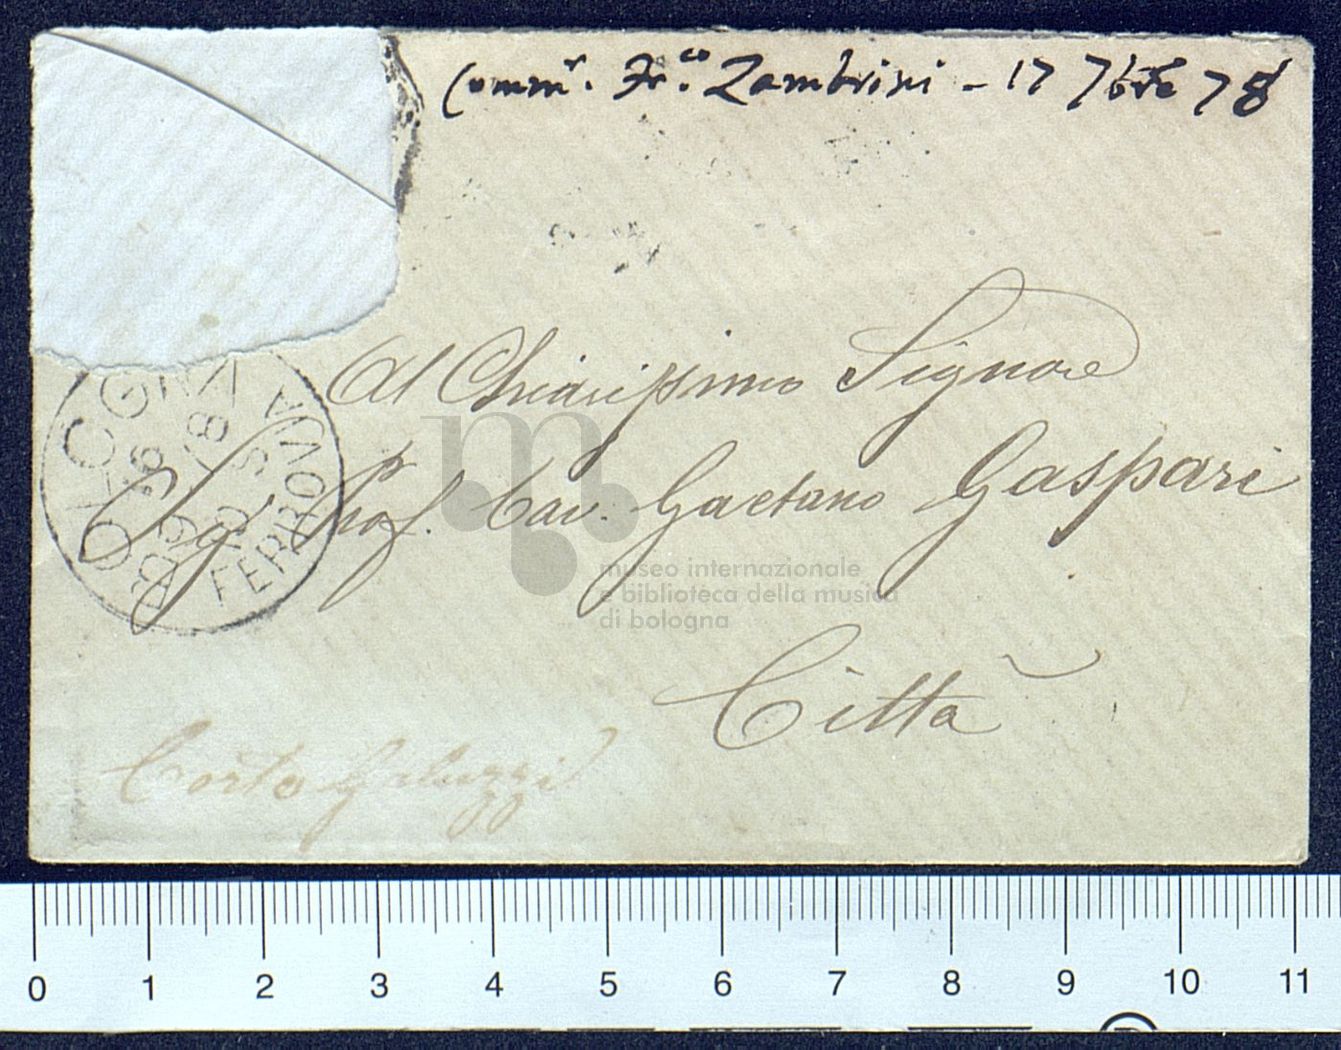 Comm.r Fr.co Zambrini - 17 7bre 78
Al Chiarissimo Signore
Sig. Prof. Cav. Gaetano Gaspari
Città
Corte Galuzzi
BOLOGNA
FERROVIA
museo internazionale
e biblioteca della musica
di bologna
0 1 2 3 4 5 6 7 8 9 10 11